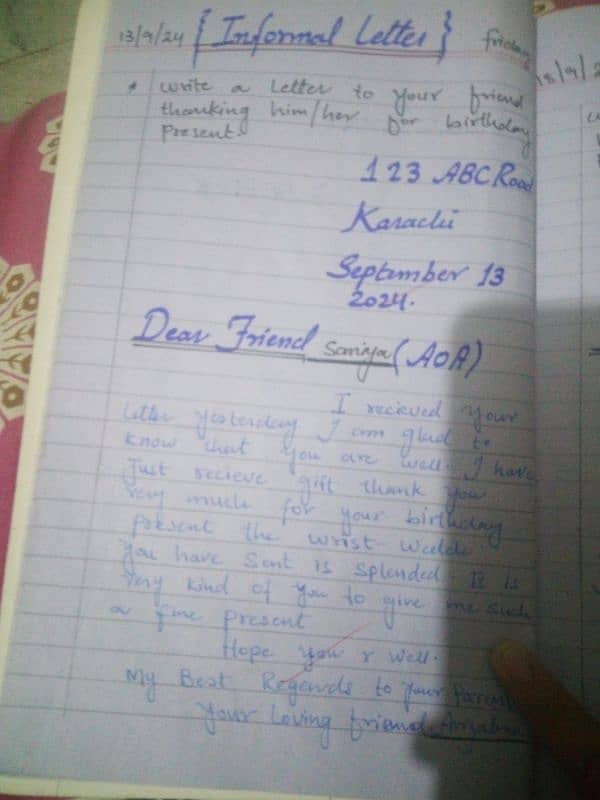 13/9/24 { Informal Letter } friday
* Write a Letter to your friend
thanking him/her for birthday
Present.
123 ABC Road
Karachi
September 13
2024.
Dear Friend Somiya (AOA)
I recieved your
Letter yesterday I am glad to
know that you are well. I have
Just recieve gift thank you
very much for your birthday
present the wrist watch
you have sent is splended. It is
very kind of you to give me such
a fine present
Hope you r well.
My Best Regards to your Parents
Your Loving friend
18/9/2